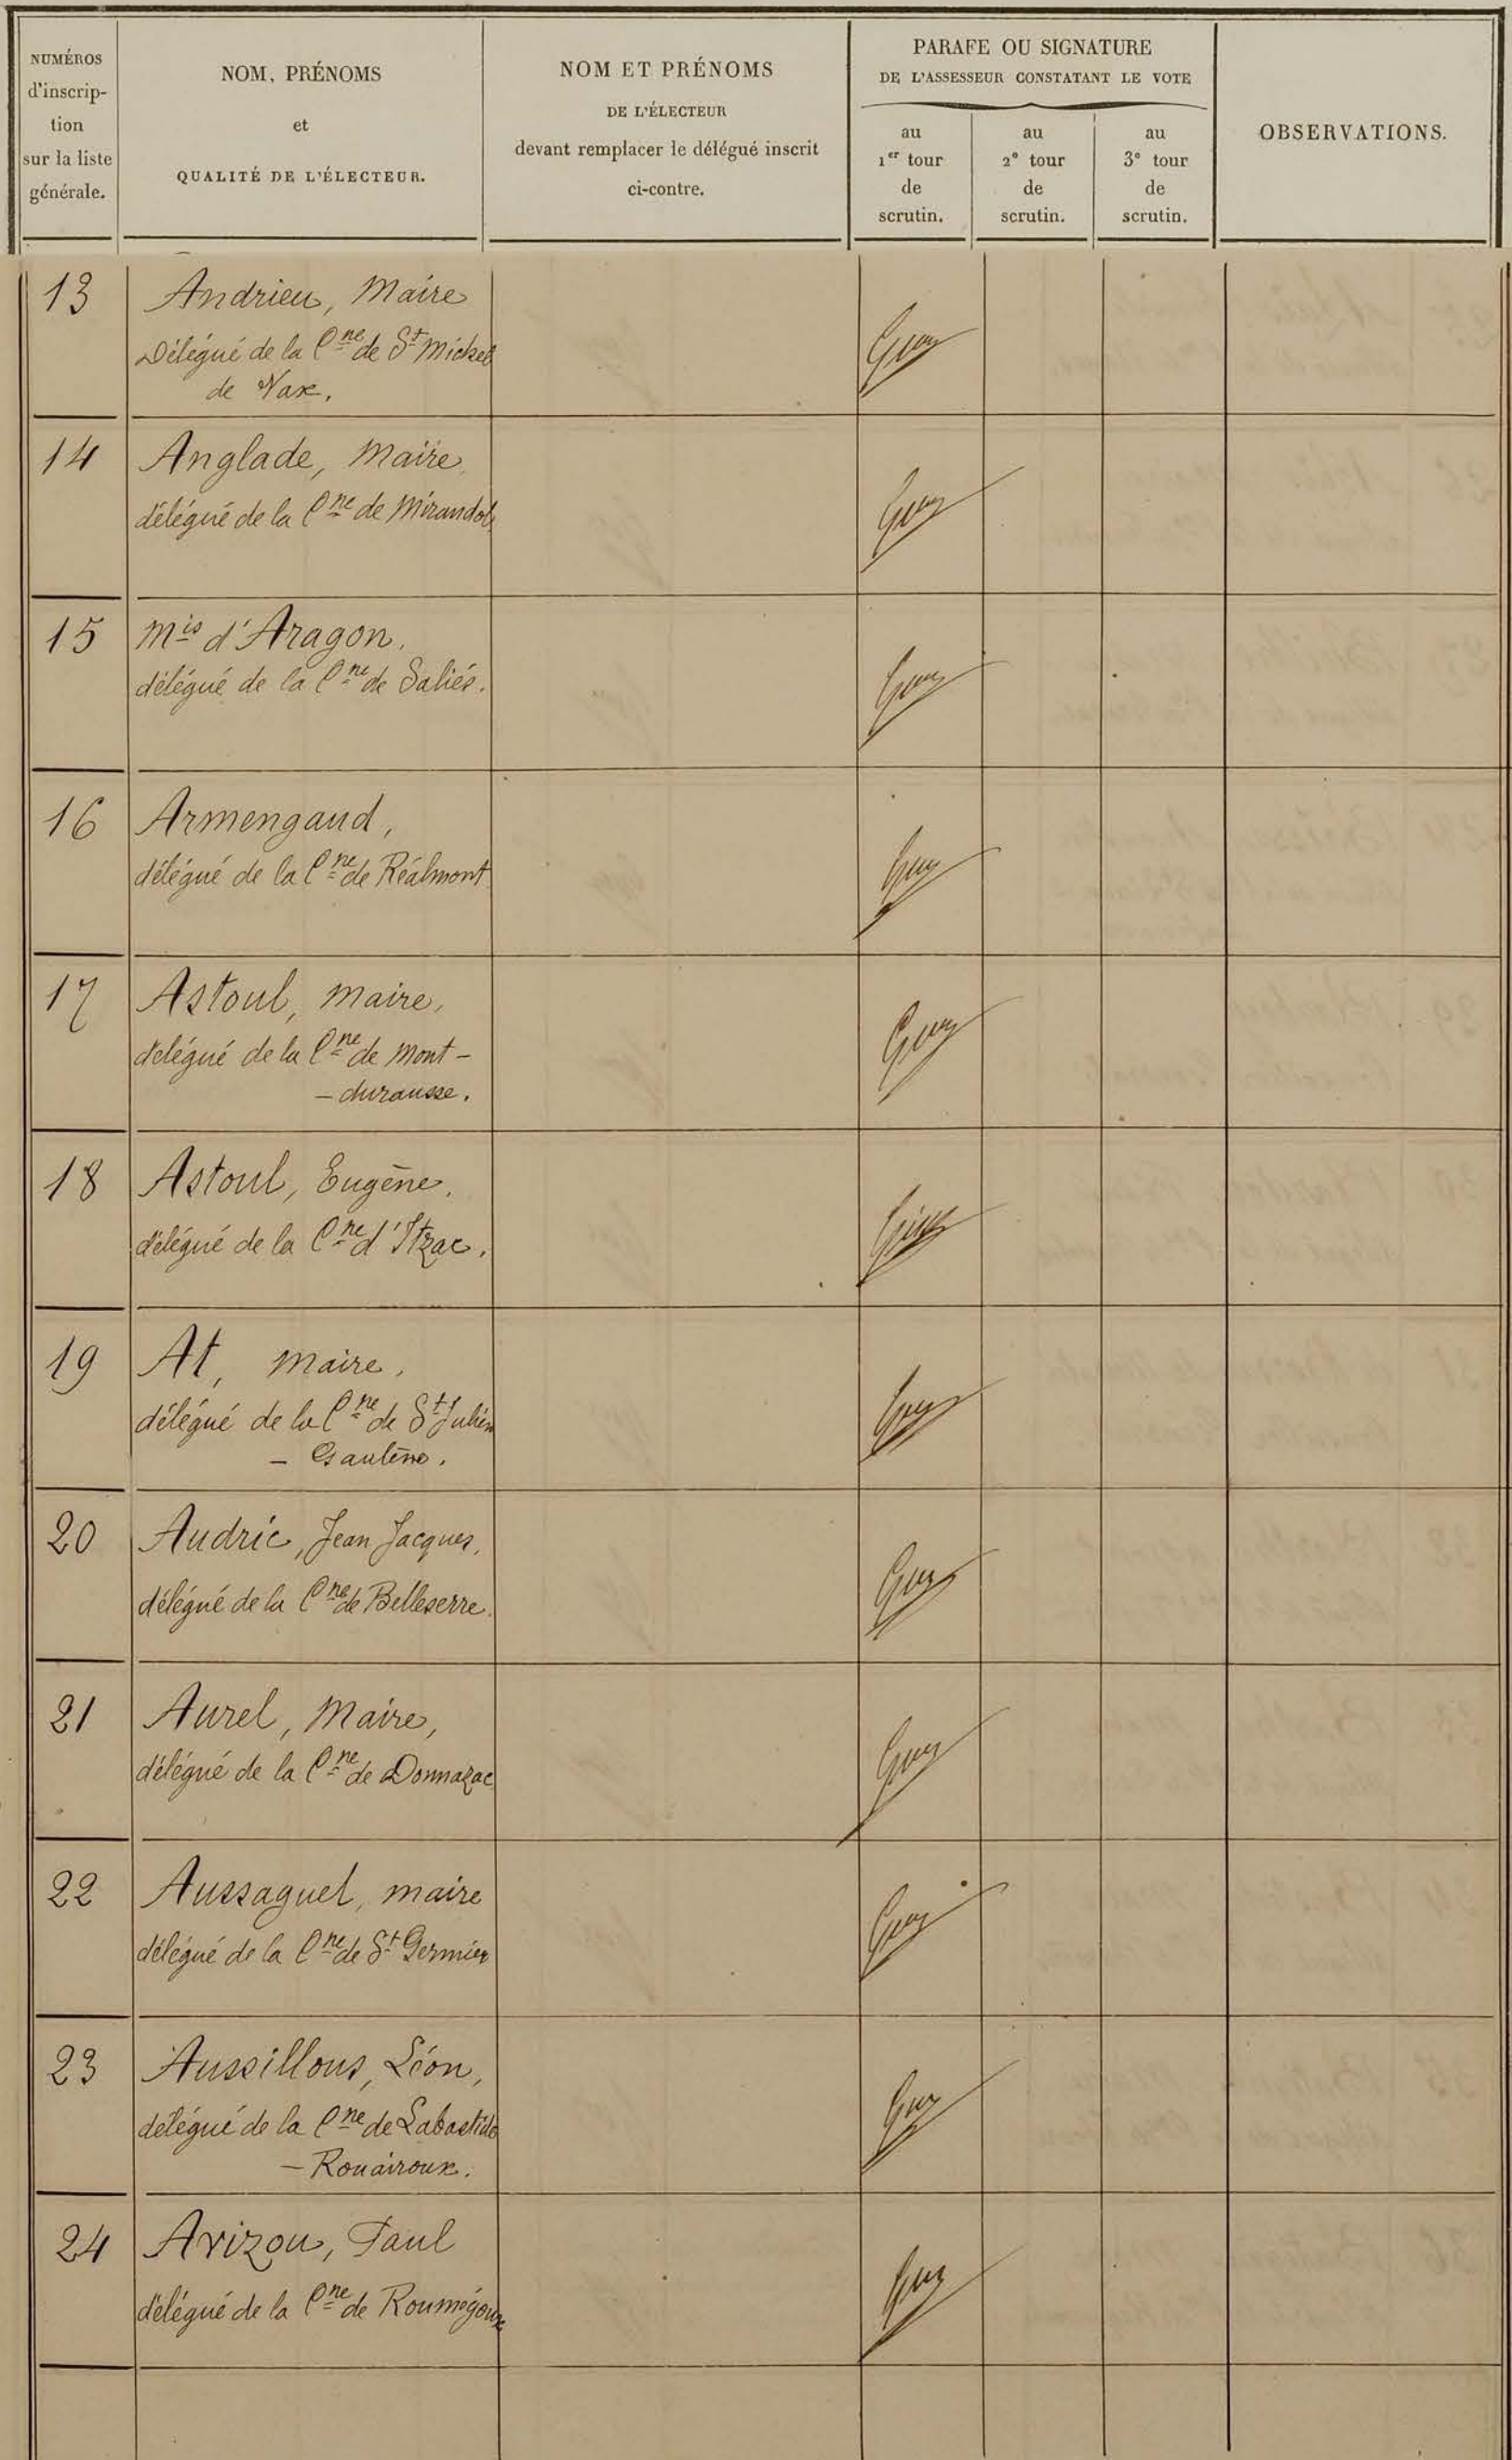 NUMÉROS
d'inscrip-
tion
sur la liste
générale.
NOM, PRÉNOMS
et
QUALITÉ DE L'ÉLECTEUR.
NOM ET PRÉNOMS
DE L'ÉLECTEUR
devant remplacer le délégué inscrit
ci-contre.
PARAFE OU SIGNATURE
DE L'ASSESSEUR CONSTATANT LE VOTE
au
1er tour
de
scrutin.
au
2e tour
de
scrutin.
au
3e tour
de
scrutin.
OBSERVATIONS.
13 Andrieu, Maire
Délégué de la Cne de St Michel
de Vax.
14 Anglade, Maire,
délégué de la Cne de Mirandol
15 Mis d'Aragon.
délégué de la Cne de Saliés.
16 Armengaud,
délégué de la Cne de Réalmont
17 Astoul, Maire,
délégué de la Cne de Mont-
-durausse.
18 Astoul, Eugène,
délégué de la Cne d'Itzac.
19 At, Maire,
délégué de la Cne de St Julien
- Gaulène.
20 Audric, Jean Jacques,
délégué de la Cne de Belleserre.
21 Aurel, Maire,
délégué de la Cne de Donnazac
22 Aussaguel, maire
délégué de la Cne de St Germier
23 Aussillous, Léon,
délégué de la Cne de Labastide
- Rouairoux.
24 Avizou, Paul
délégué de la Cne de Roumégoux